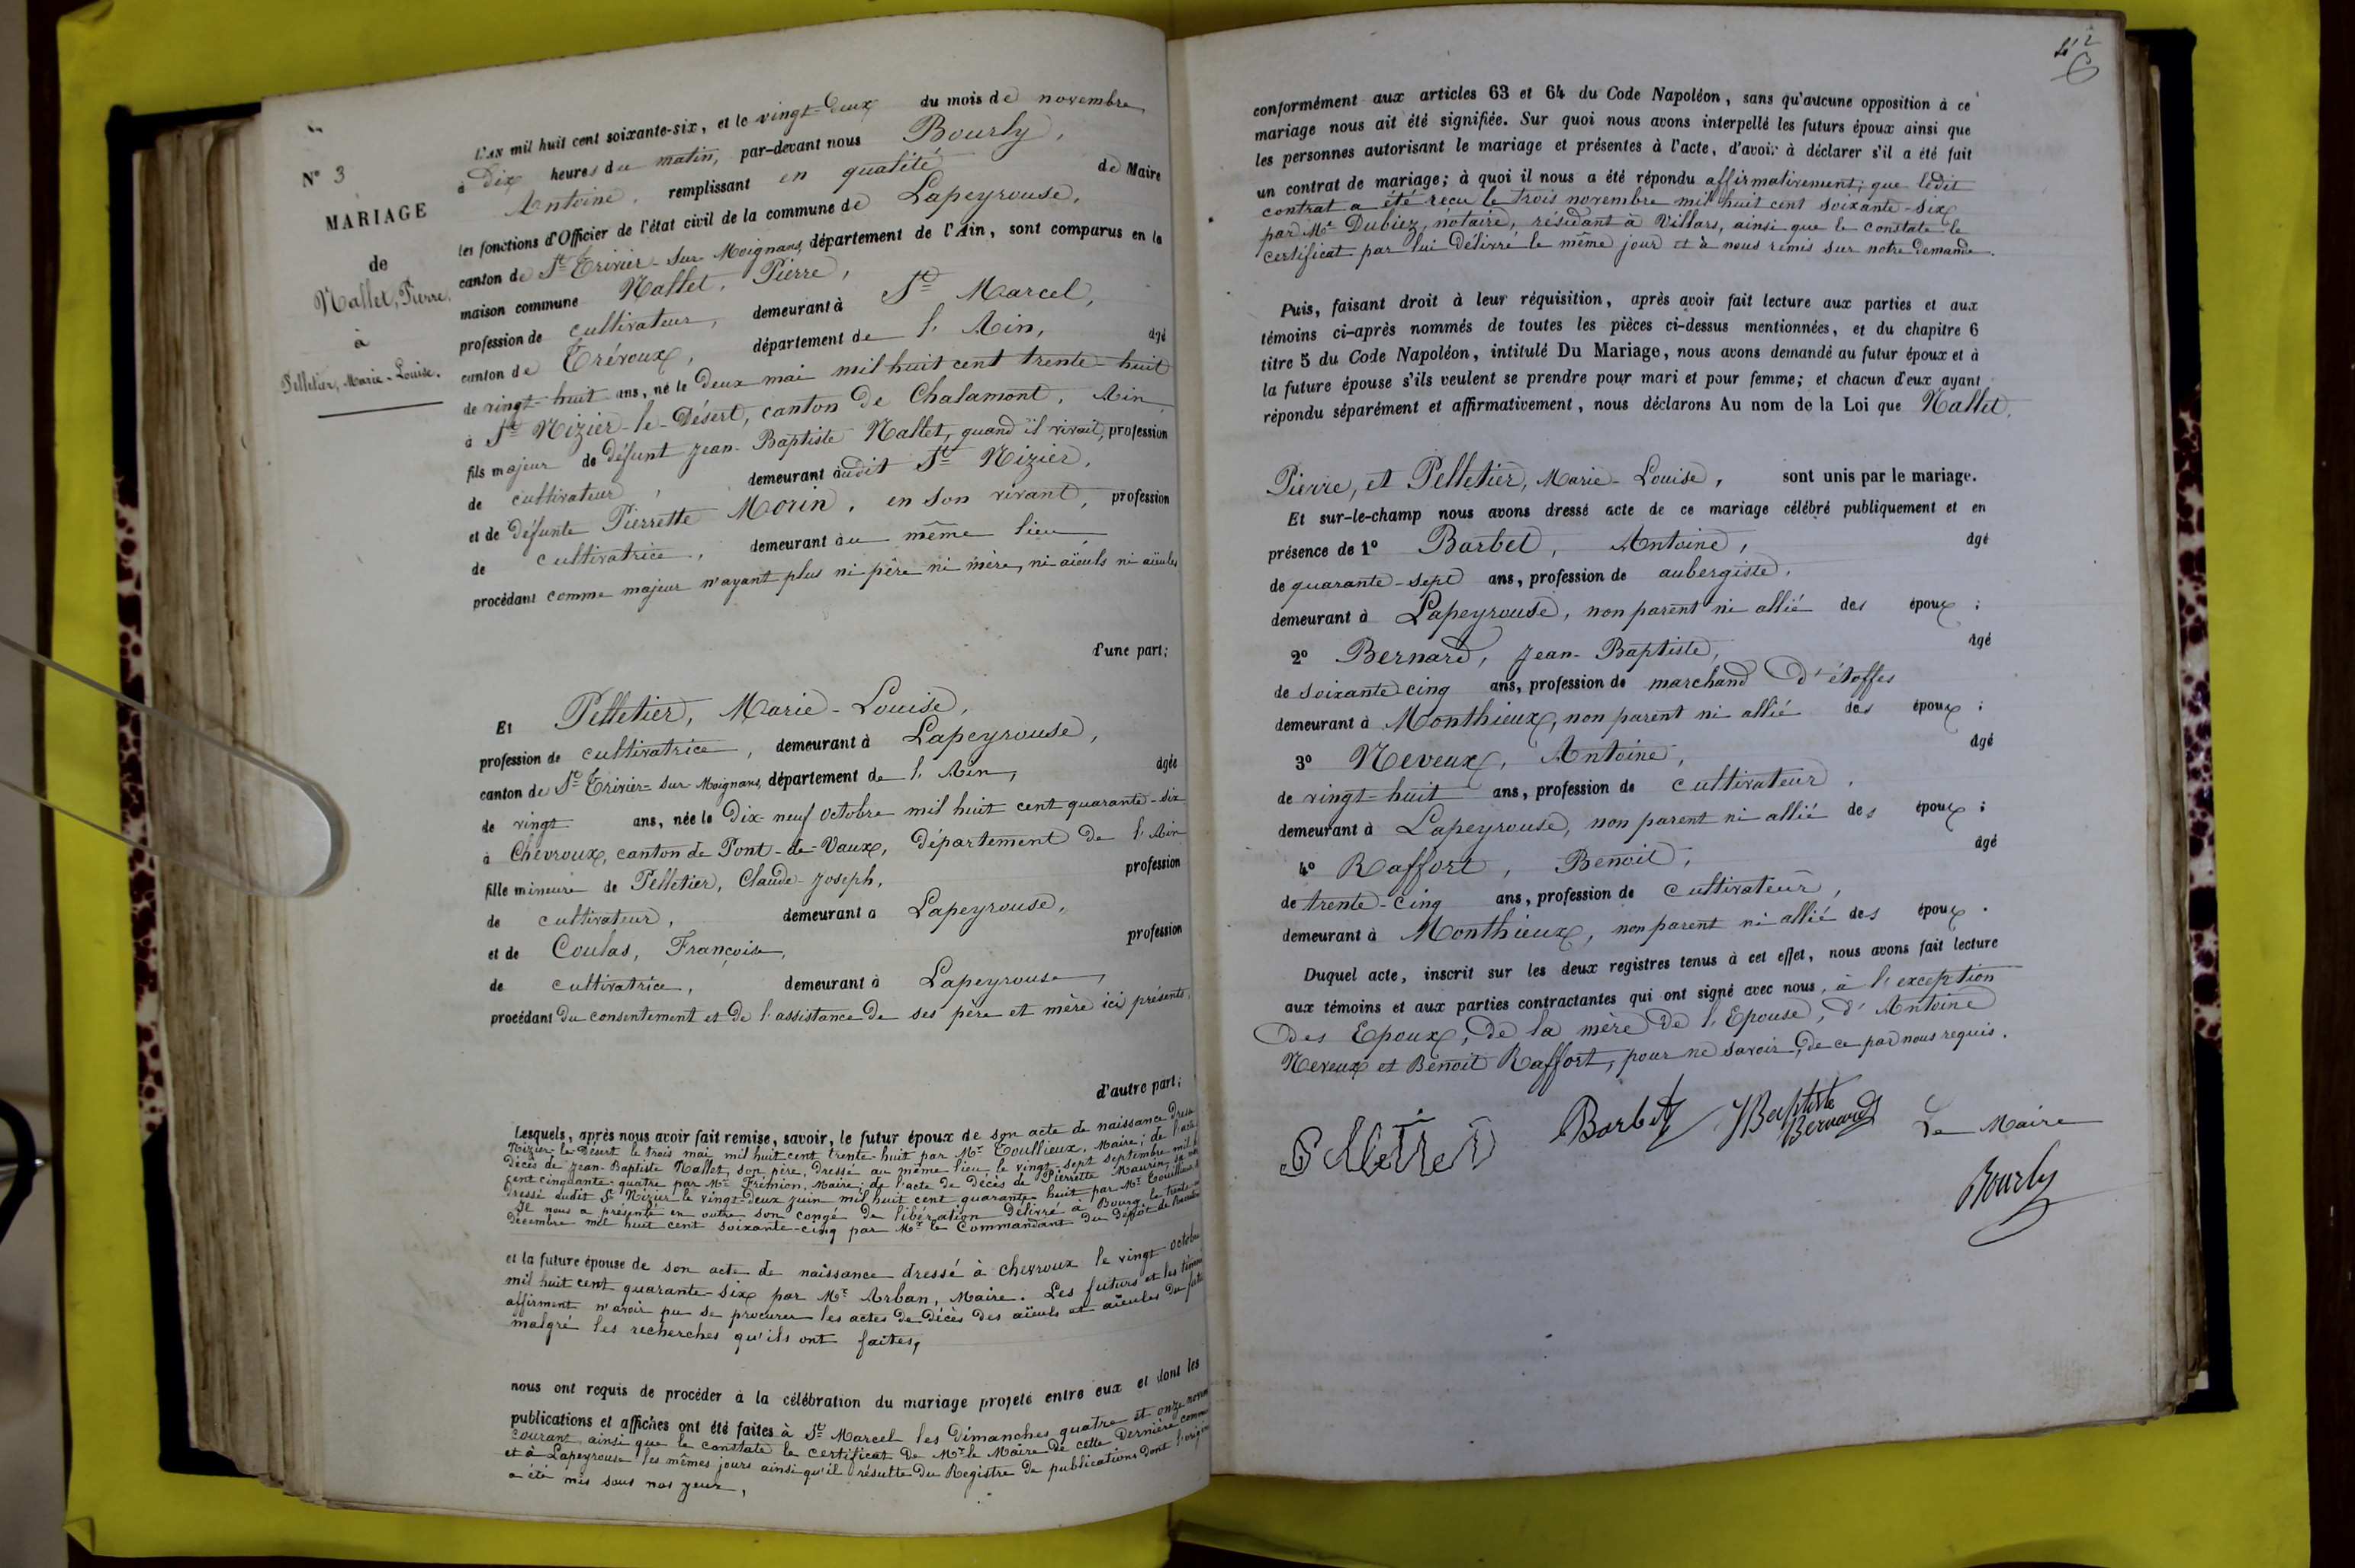 N° 3
MARIAGE
de
Nallet, Pierre,
à
Pelletier, Marie-Louise.
L'AN mil huit cent soixante-six, et le vingt-deux du mois de novembre
à dix heures du matin, par-devant nous Bourly,
Antoine, remplissant en qualité de Maire
les fonctions d'Officier de l'état civil de la commune de Lapeyrouse,
canton de St Trivier-sur-Moignans, département de l'Ain, sont comparus en la
maison commune Nallet, Pierre,
profession de cultivateur, demeurant à St Marcel,
canton de Trévoux, département de l'Ain, âgé
de vingt-huit ans, né le deux mai mil huit cent trente-huit
à St Nizier-le-Désert, canton de Chalamont, Ain,
fils majeur de défunt Jean-Baptiste Nallet, quand il vivait, profession
de cultivateur, demeurant audit St Nizier,
et de défunte Pierrette Morin, en son vivant, profession
de cultivatrice, demeurant au même lieu,
procédant comme majeur n'ayant plus ni père ni mère, ni aïeuls ni aïeules
d'une part;
Et Pelletier, Marie-Louise,
profession de cultivatrice, demeurant à Lapeyrouse,
canton de St Trivier-sur-Moignans, département de l'Ain, âgée
de vingt ans, née le dix-neuf octobre mil huit cent quarante-six
à Chevroux, canton de Pont-de-Vaux, département de l'Ain
fille mineure de Pelletier, Claude-Joseph, profession
de cultivateur, demeurant à Lapeyrouse,
et de Coulas, Françoise, profession
de cultivatrice, demeurant à Lapeyrouse,
procédant du consentement et de l'assistance de ses père et mère ici présents,
d'autre part;
Lesquels, après nous avoir fait remise, savoir, le futur époux de son acte de naissance dressé
Nizier-le-Désert le trois mai mil huit cent trente-huit par Mr Toullieux, Maire; de l'acte
décès de Jean-Baptiste Nallet, son père, dressé au même lieu le vingt-sept septembre mil
cent cinquante-quatre par Mr Frémion, Maire; de l'acte de décès de Pierrette Maurin, sa
dressé audit St Nizier le vingt-deux juin mil huit cent quarante-huit par Mr Toullieux
Il nous a présenté en outre son congé de libération délivré à Bourg le trente
décembre mil huit cent soixante-cinq par Mr le Commandant du dépôt de
et la future épouse de son acte de naissance dressé à Chevroux le vingt octobre
mil huit cent quarante-six par Mr Arban, Maire. Les futurs et les témoins
affirment n'avoir pu se procurer les actes de décès des aïeuls et aïeules du futur
malgré les recherches qu'ils ont faites,
nous ont requis de procéder à la célébration du mariage projeté entre eux et dont les
publications et affiches ont été faites à St Marcel les dimanches quatre et onze novem
courant, ainsi que le constate le certificat de Mr le Maire de cette dernière commu
et à Lapeyrouse les mêmes jours ainsi qu'il résulte du Registre de publications dont l'origin
a été mis sous nos yeux,
conformément aux articles 63 et 64 du Code Napoléon, sans qu'aucune opposition à ce
mariage nous ait été signifiée. Sur quoi nous avons interpellé les futurs époux ainsi que
les personnes autorisant le mariage et présentes à l'acte, d'avoir à déclarer s'il a été fait
un contrat de mariage; à quoi il nous a été répondu affirmativement; que ledit
contrat a été reçu le trois novembre mil huit cent soixante-six
par Me Dubiez, notaire, résidant à Villars, ainsi que le constate le
certificat par lui délivré le même jour et à nous remis sur notre demande.
Puis, faisant droit à leur réquisition, après avoir fait lecture aux parties et aux
témoins ci-après nommés de toutes les pièces ci-dessus mentionnées, et du chapitre 6
titre 5 du Code Napoléon, intitulé Du Mariage, nous avons demandé au futur époux et à
la future épouse s'ils veulent se prendre pour mari et pour femme; et chacun d'eux ayant
répondu séparément et affirmativement, nous déclarons Au nom de la Loi que Nallet,
Pierre, et Pelletier, Marie-Louise, sont unis par le mariage.
Et sur-le-champ nous avons dressé acte de ce mariage célébré publiquement et en
présence de 1° Barbet, Antoine, âgé
de quarante-sept ans, profession de aubergiste,
demeurant à Lapeyrouse, non parent ni allié des époux;
2° Bernard, Jean-Baptiste, âgé
de soixante-cinq ans, profession de marchand d'étoffes
demeurant à Monthieux, non parent ni allié des époux;
3° Neveux, Antoine, âgé
de vingt-huit ans, profession de cultivateur,
demeurant à Lapeyrouse, non parent ni allié des époux;
4° Raffort, Benoit, âgé
de trente-cinq ans, profession de cultivateur,
demeurant à Monthieux, non parent ni allié des époux.
Duquel acte, inscrit sur les deux registres tenus à cet effet, nous avons fait lecture
aux témoins et aux parties contractantes qui ont signé avec nous, à l'exception
des Epoux, de la mère de l'Epouse, d'Antoine
Neveux et Benoit Raffort, pour ne savoir, de ce par nous requis.
Pelletier Barbet JBaptiste
Bernard
Le Maire
Bourly